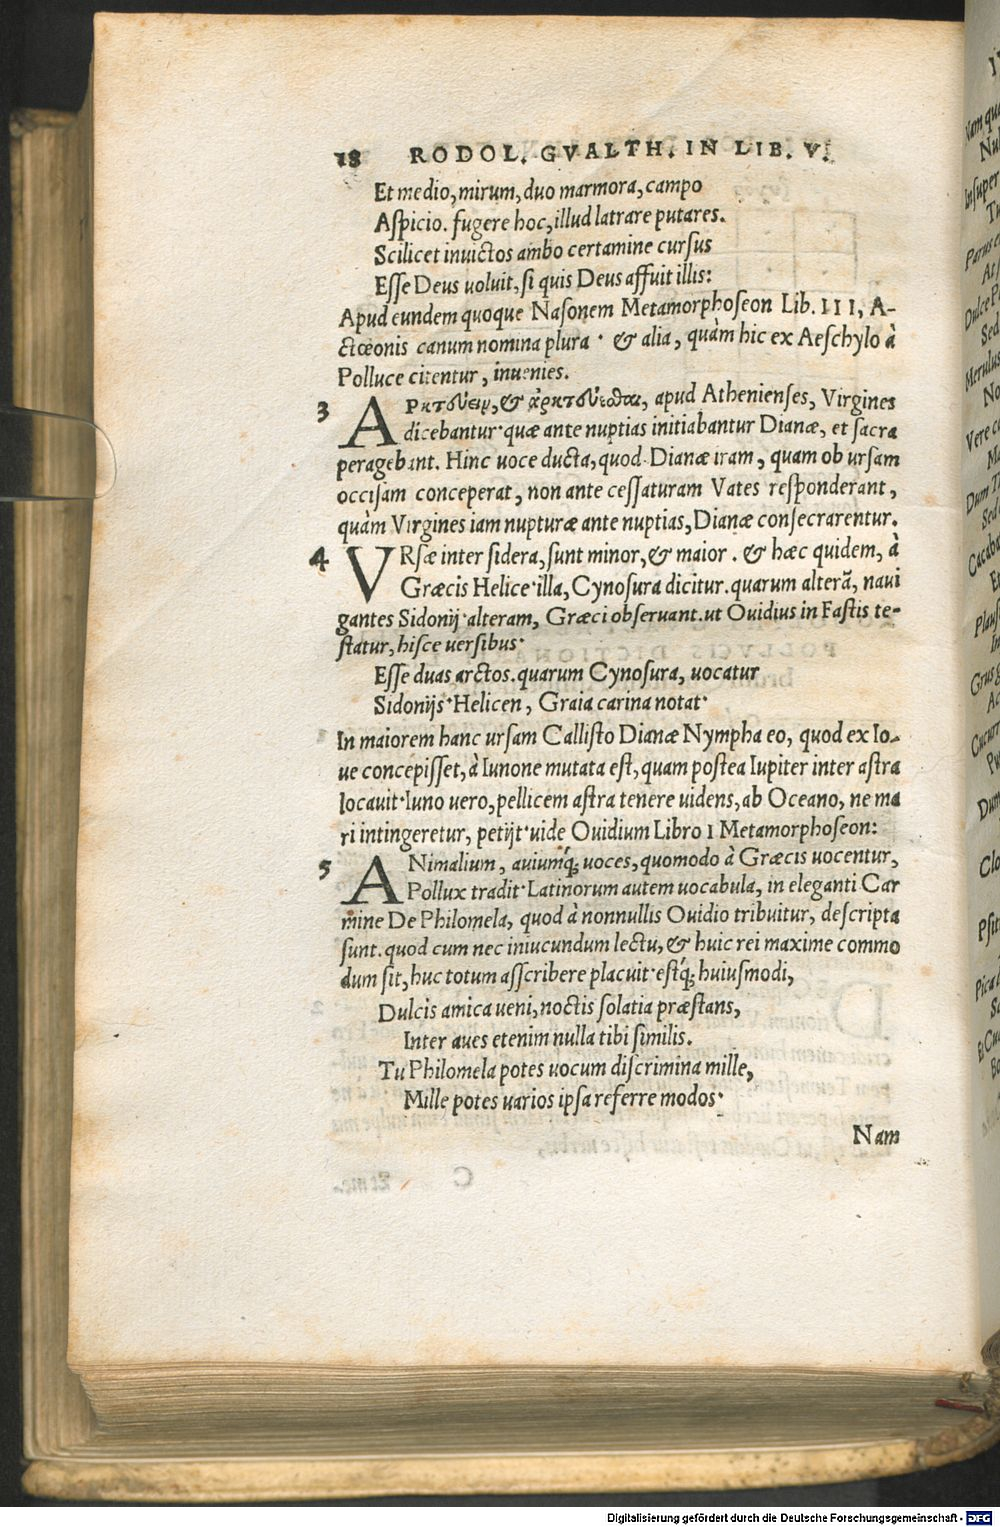 18 RODOL. GVALTH. IN LIB. V.
Et medio, mirum, duo marmora, campo
Aſpicio. fugere hoc, illud latrare putares.
Scilicet inuictos ambo certamine curſus
Eſſe Deus uoluit, ſi quis Deus affuit illis:
Apud eundem quoque Naſonem Metamorphoſeon Lib. III, A-
ctæonis canum nomina plura · & alia, quàm hic ex Aeſchylo à
Polluce citentur, inuenies.
3 ΑΡκτούειν, & ἀρκτούεσθαι, apud Athenienſes, Virgines
dicebantur· quæ ante nuptias initiabantur Dianæ, et ſacra
peragebant. Hinc uoce ducta, quod Dianæ iram, quam ob urſam
occiſam conceperat, non ante ceſſaturam Vates reſponderant,
quàm Virgines iam nupturæ ante nuptias, Dianæ conſecrarentur.
4 VRſæ inter ſidera, ſunt minor, & maior. & hæc quidem, à
Græcis Helice·illa, Cynoſura dicitur. quarum alterā, naui
gantes Sidonij·alteram, Græci obſeruant. ut Ouidius in Faſtis te-
ſtatur, hiſce uerſibus·
Eſſe duas arctos. quarum Cynoſura, uocatur
Sidonijs·Helicen, Graia carina notat·
In maiorem hanc urſam Calliſto Dianæ Nympha eo, quod ex Io-
ue concepiſſet, à Iunone mutata eſt, quam poſtea Iupiter inter aſtra
locauit·Iuno uero, pellicem aſtra tenere uidens, ab Oceano, ne ma
ri intingeretur, petijt·uide Ouidium Libro 1 Metamorphoſeon:
5 ANimalium, auiumq́; uoces, quomodo à Græcis uocentur,
Pollux tradit·Latinorum autem uocabula, in eleganti Car
mine De Philomela, quod à nonnullis Ouidio tribuitur, deſcripta
ſunt. quod cum nec iniucundum lectu, & huic rei maxime commo
dum ſit, huc totum aſſcribere placuit·eſtq́; huiuſmodi,
Dulcis amica ueni, noctis ſolatia præſtans,
Inter aues etenim nulla tibi ſimilis.
Tu Philomela potes uocum diſcrimina mille,
Mille potes uarios ipſa referre modos·
Nam
Digitalisierung gefördert durch die Deutsche Forschungsgemeinschaft - DFG